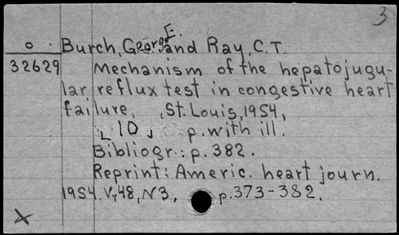 3
o Burch, George E. and Ray, C.T.
32629 Mechanism of the hepatojugu-
lar reflux test in congestive heart
failure. St. Louis, 1954,
[10] p. with ill.
Bibliogr.: p. 382.
Reprint: Americ. heart journ.
1954. V, 48, N3, p. 373-382.
X